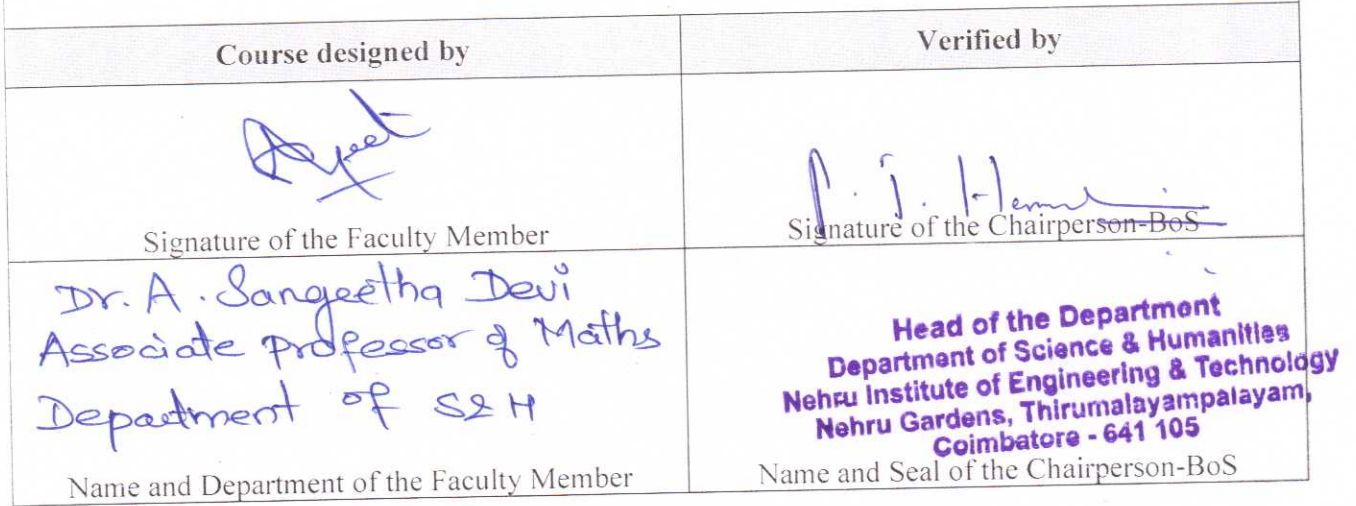 Course designed by
Verified by
Signature of the Faculty Member
Signature of the Chairperson-BoS
Dr. A. Sangeetha Devi
Associate professor of Maths
Department of S&H
Name and Department of the Faculty Member
Head of the Department
Department of Science & Humanities
Nehru Institute of Engineering & Technology
Nehru Gardens, Thirumalayampalayam,
Coimbatore - 641 105
Name and Seal of the Chairperson-BoS